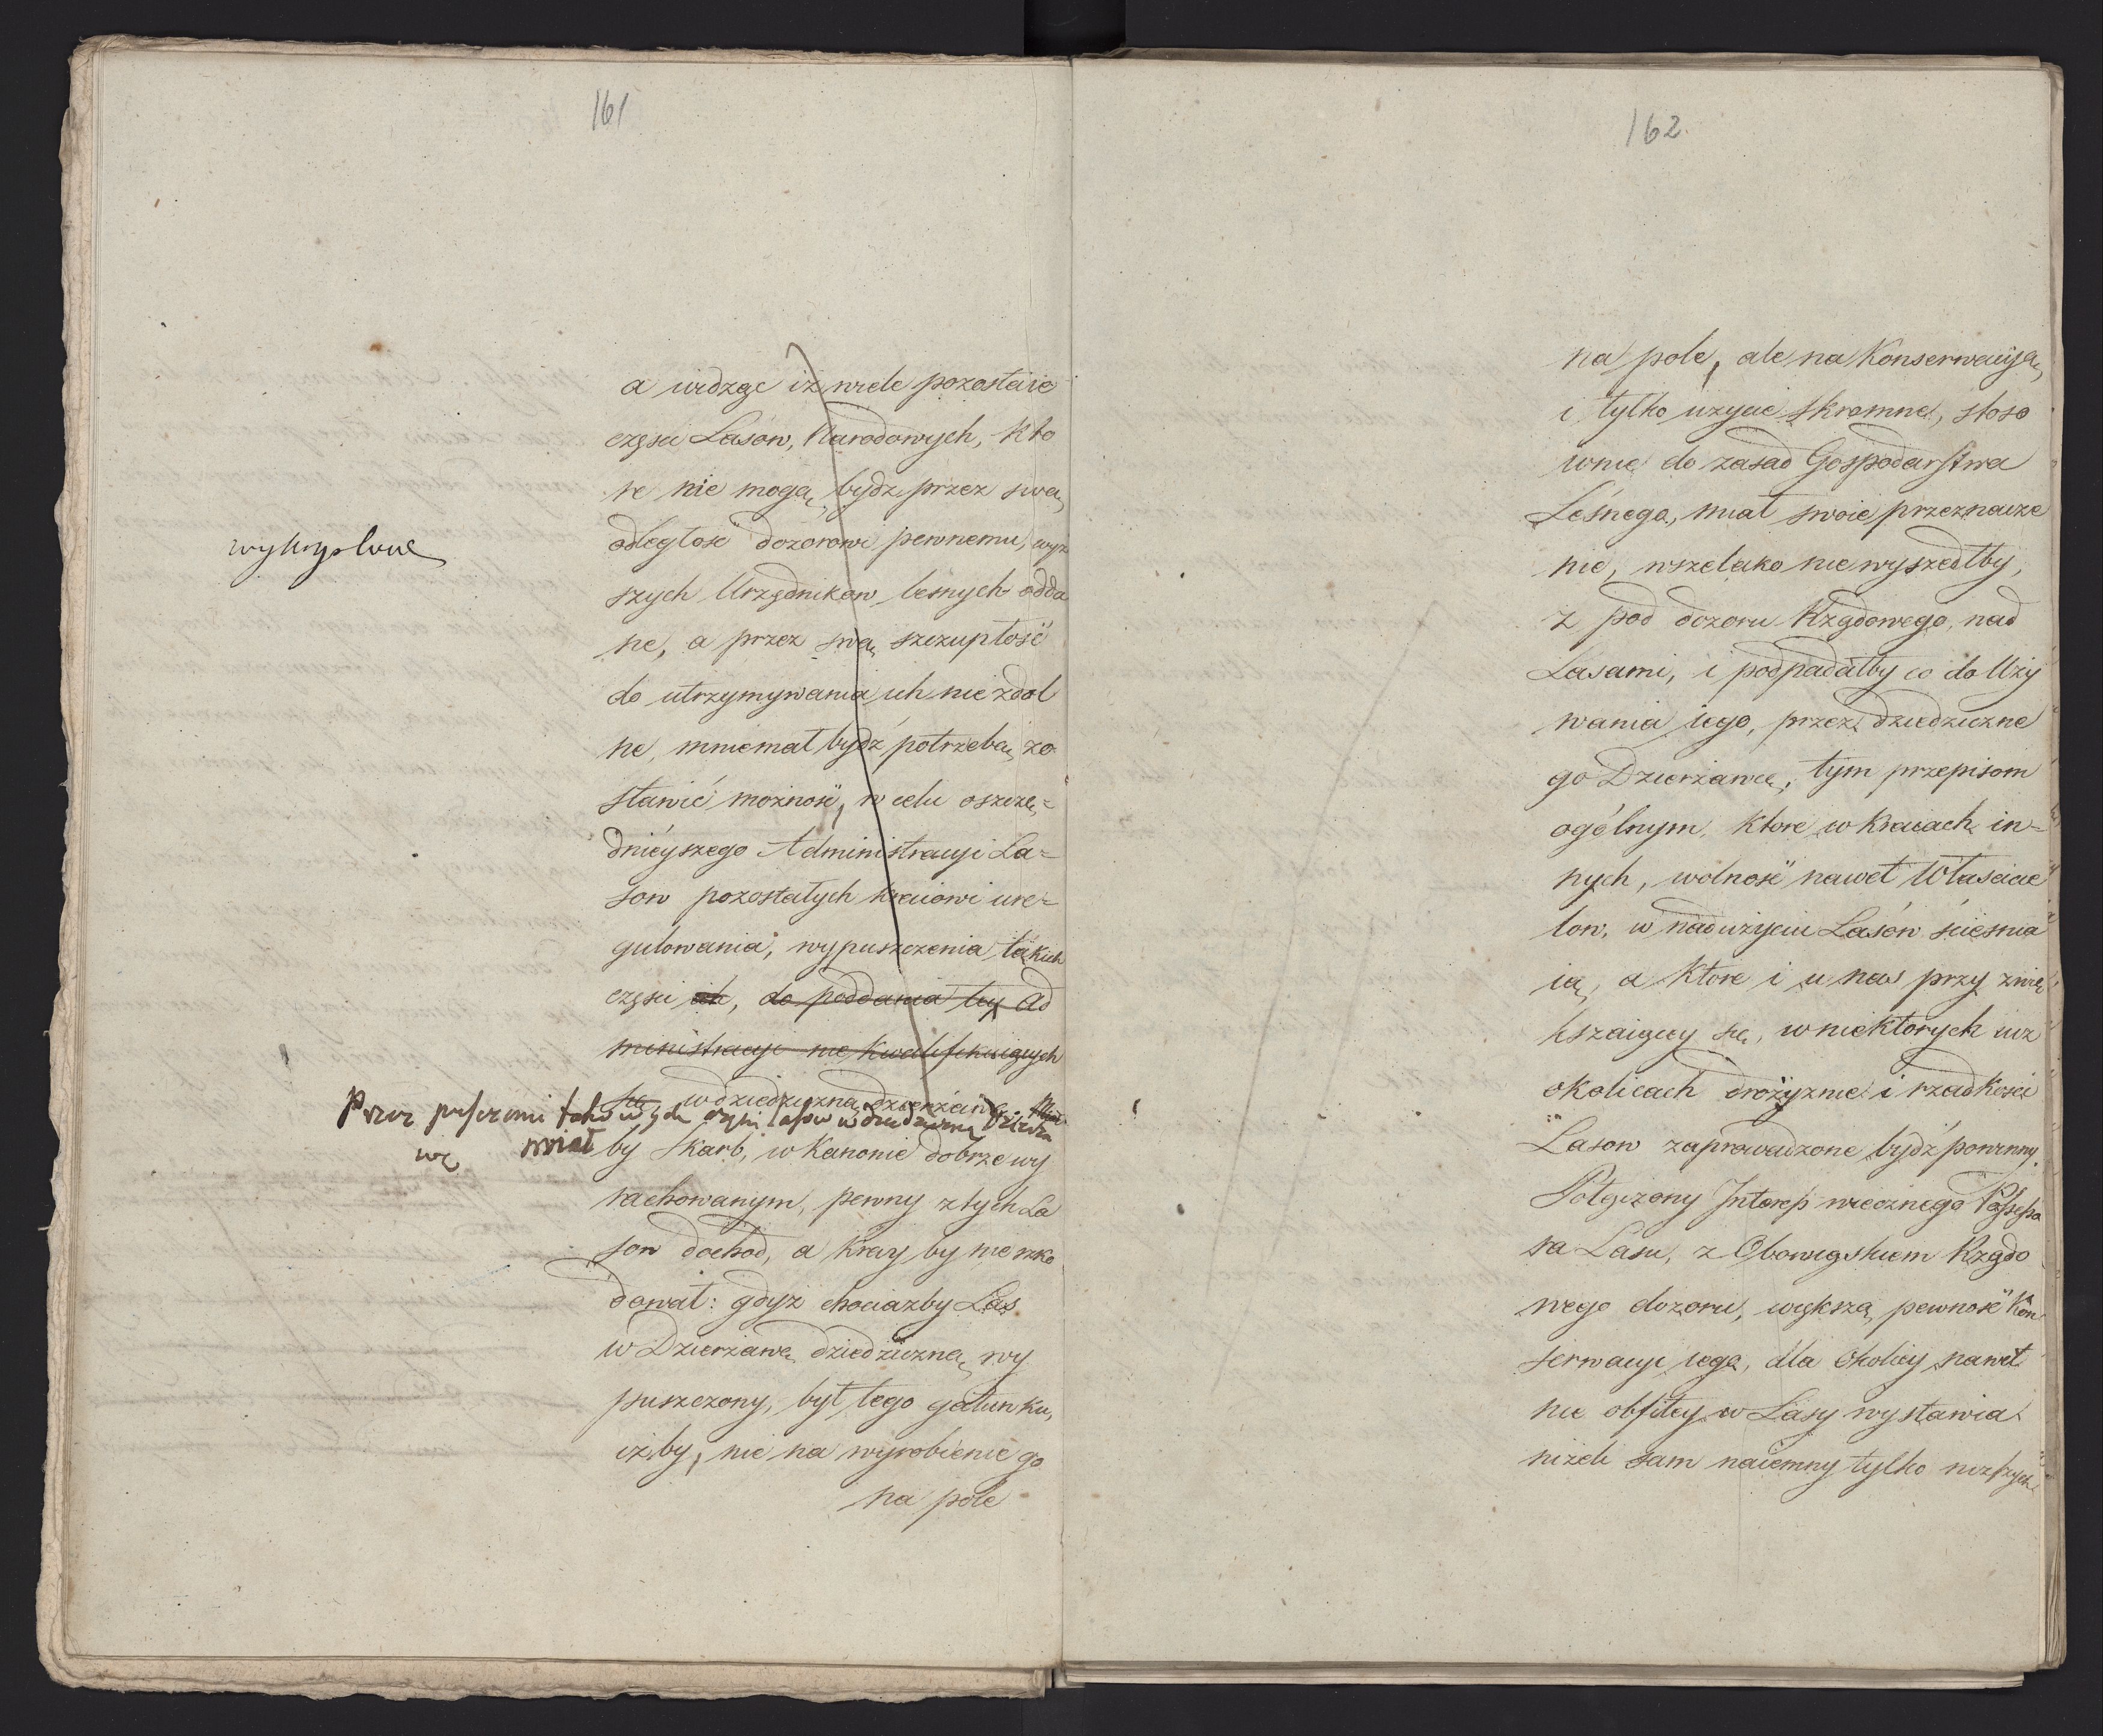 161
a widząc iż wiele pozostaie
części Lasów, Narodowych, któ
re nie mogą, bydź przez swą
odległość dozorowi pewnemu, wyż
szych Urzędnikow leśnych odda
ne, a przez swą szczupłość
do utrzymywania ich nie zdol
ne, mniemał bydź potrzebą zo
stawić możność, w celu oszczę=
dnieyszego Administracyi La=
sow pozostałych kraiowi ure=
gulowania, wypuszczenia takich
części ich, do poddania tey Ad
ministracyi nie kwalifikuiących
się w dziedziczną dzierżawę.
Przez puszczenie takowych części lasów w dziedziczną Dzierża
wę miał by Skarb, w Kanonie dobrze wy
rachowanym, pewny z tych La
sow dochod, a kray by nie szko
dował: gdyż chociażby Las
w Dzierżawę dziedziczną wy
puszczony, był tego gatunku,
iżby, nie na wyrobienie go
na pole
162.
na pole, ale na Konserwacyą,
i tylko użycie skromne, stoso
wnie do zasad Gospodarstwa
Leśnego, miał swoie przeznacze
nie, wszelako nie wyszedłby,
z pod dozoru Rządowego, nad
Lasami, i podpadałby co do Uży
wania iego, przez dziedziczne
go Dzierżawcę, tym przepisom
ogólnym, ktore w Kraiach in=
nych, wolność nawet Właścicie
low, w nadużyciu Lasów ścieśnia
ią, a ktore i u nas przy zwię
kszaiącey się, w niektorych iuż
okolicach drożyznie i rzadkości
Lasow zaprowadzone bydź powinny.
Połączony Interess wiecznego Possesso
ra Lasu, z Obowiązkiem Rządo
wego dozoru, większą pewność Kon
serwacyi iego, dla Okolicy nawet
nie obfitey w Lasy wystawia
niżeli sam naiemny tylko niższych